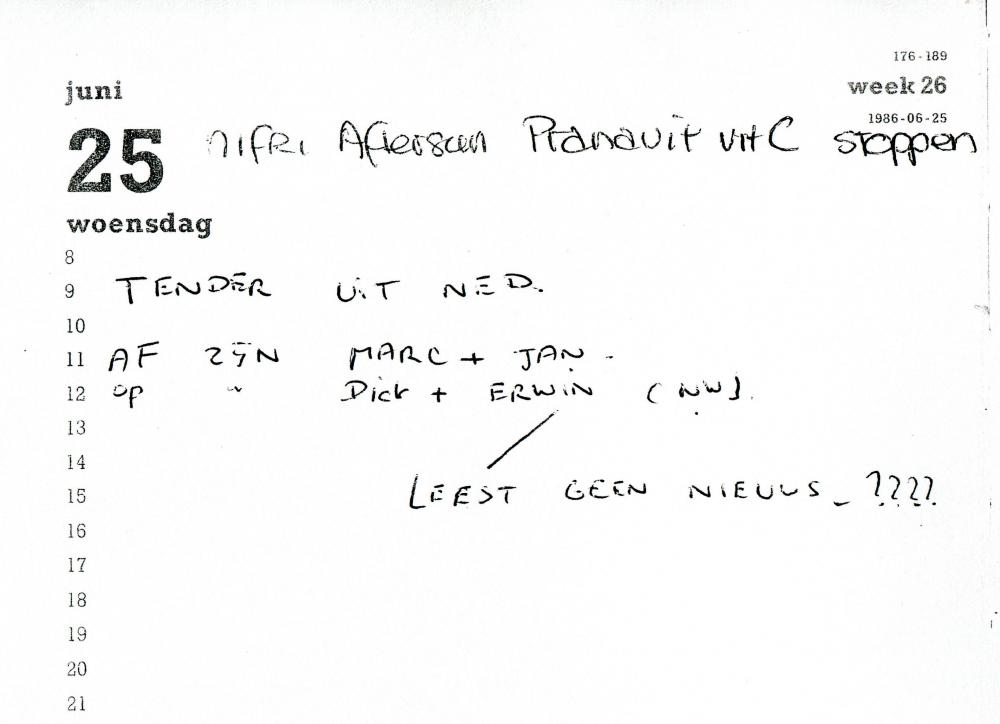 176-189
juni
week 26
1986-06-25
25 Aftersun Pranavit vit C stoppen
woensdag
8
9 TENDER UIT NED.
10
11 AF ZIJN MARC + JAN.
12 op " Dick + ERWIN (NW).
13
14
15 LEEST GEEN NIEUWS - ????
16
17
18
19
20
21